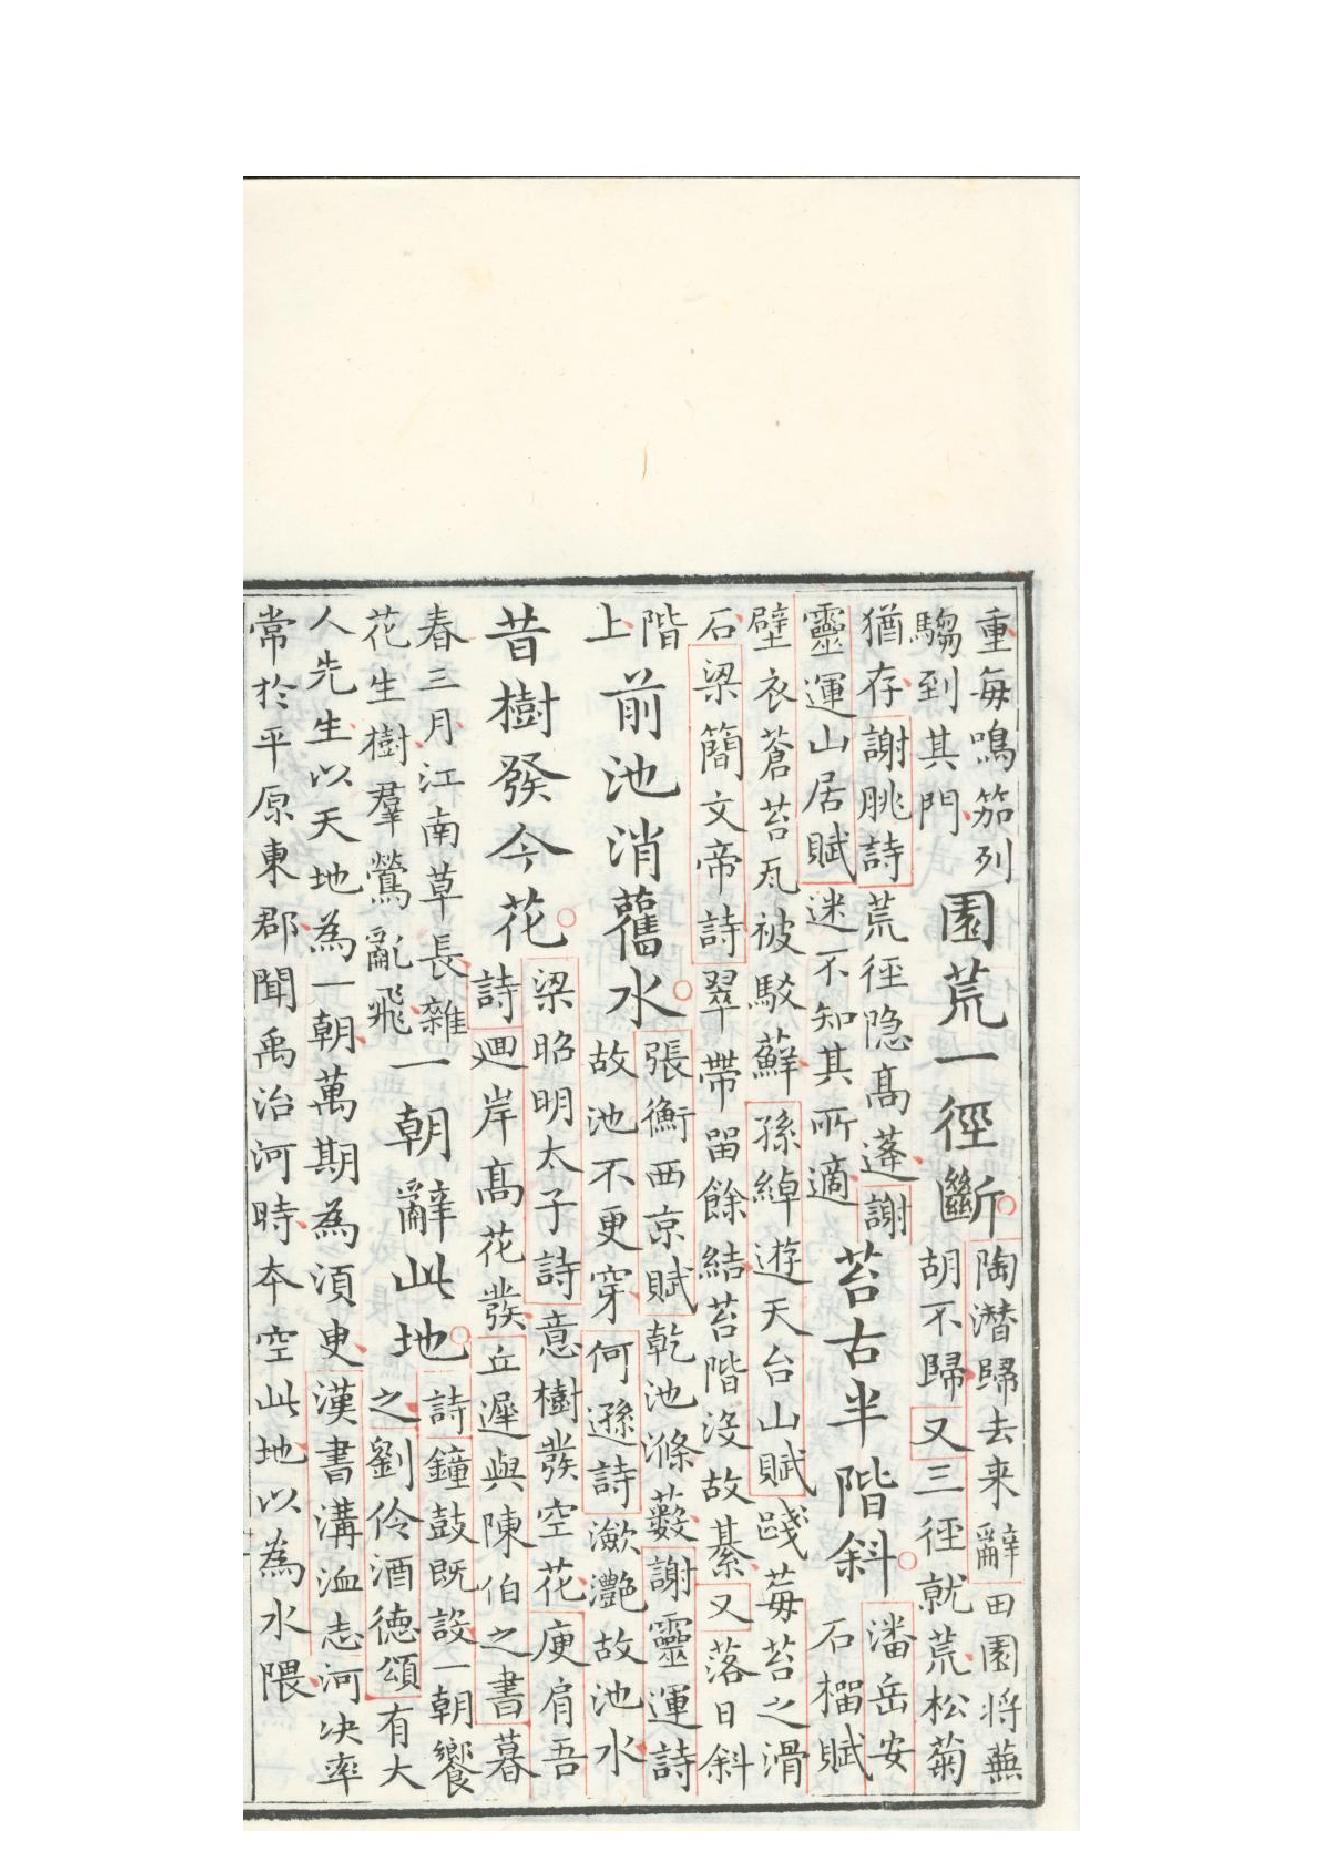 重每鳴笳列
騶到其門
園荒一徑斷
陶潜歸去来辭田園将蕪
胡不歸又三徑就荒松菊
猶存謝朓詩荒徑隐髙蓬謝
靈運山居賦迷不知其所適
苔古半階斜
潘岳安
石榴賦
壁衣蒼苔瓦被駁蘚孫綽遊天台山賦践莓苔之滑
石梁簡文帝詩翠帶留餘結苔階没故綦又落日斜
階
上
前池消舊水
張衡西京賦乾池滌藪謝靈運詩
故池不更穿何遜詩潋灧故池水
昔樹發今花
梁昭明太子詩意樹發空花庾肩吾
詩迴岸髙花發丘遲與陳伯之書暮
春三月江南草長雜
花生樹羣鶯亂飛
一朝辭此地
詩鐘鼓既設一朝饗
之劉伶酒德頌有大
人先生以天地為一朝萬期為湏臾漢書溝洫志河决率
常於平原東郡聞禹治河時本空此地以為水隈